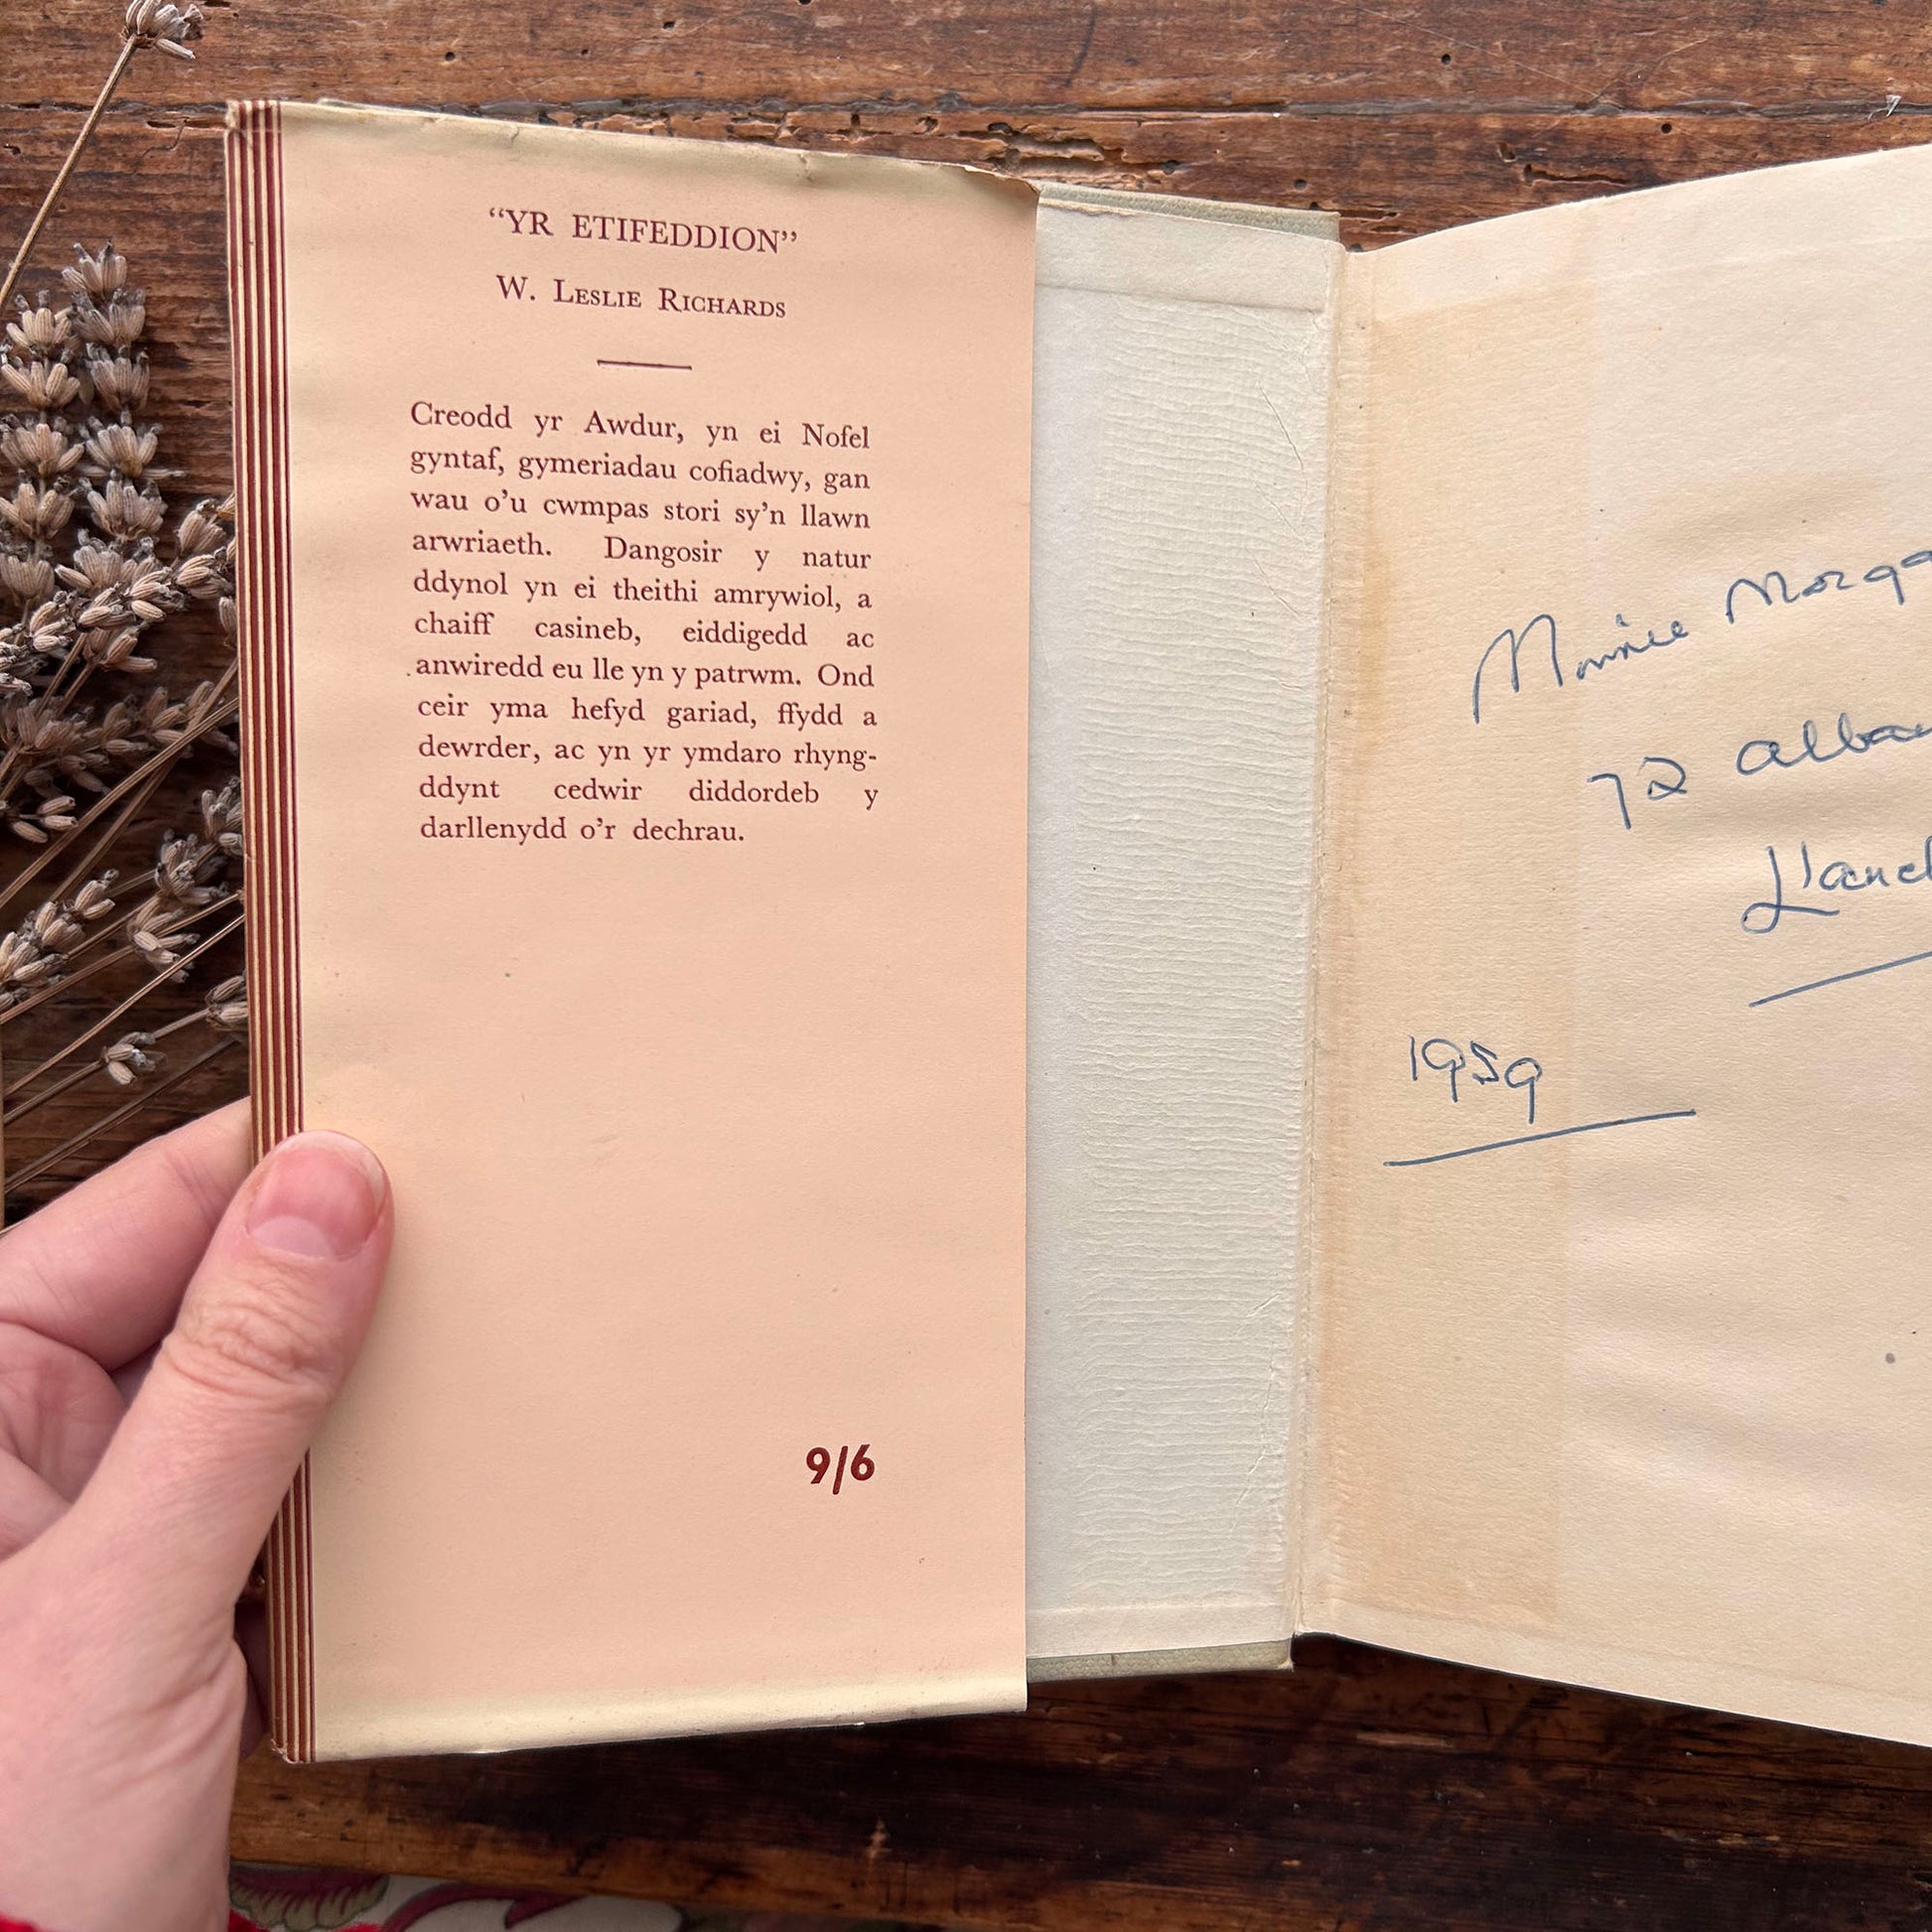 “YR ETIFEDDION”
W. LESLIE RICHARDS
Creodd yr Awdur, yn ei Nofel
gyntaf, gymeriadau cofiadwy, gan
wau o’u cwmpas stori sy’n llawn
arwriaeth. Dangosir y natur
ddynol yn ei theithi amrywiol, a
chaiff casineb, eiddigedd ac
anwiredd eu lle yn y patrwm. Ond
ceir yma hefyd gariad, ffydd a
dewrder, ac yn yr ymdaro rhyng-
ddynt cedwir diddordeb y
darllenydd o’r dechrau.
9/6
72
1959